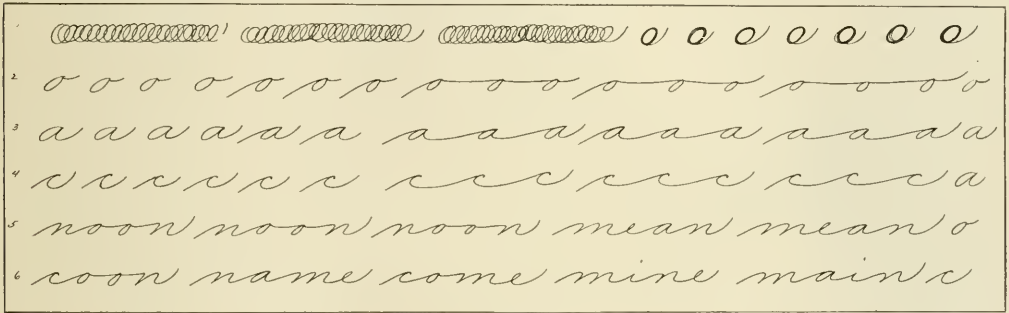 1 o o o o o o o
2 o o o o o o o o o o o o o o o o o
3 a a a a a a a a a a a a a a a a a
4 c c c c c c c c c c c c c c c c a
5 noon noon noon mean mean o
6 coon name come mine main c